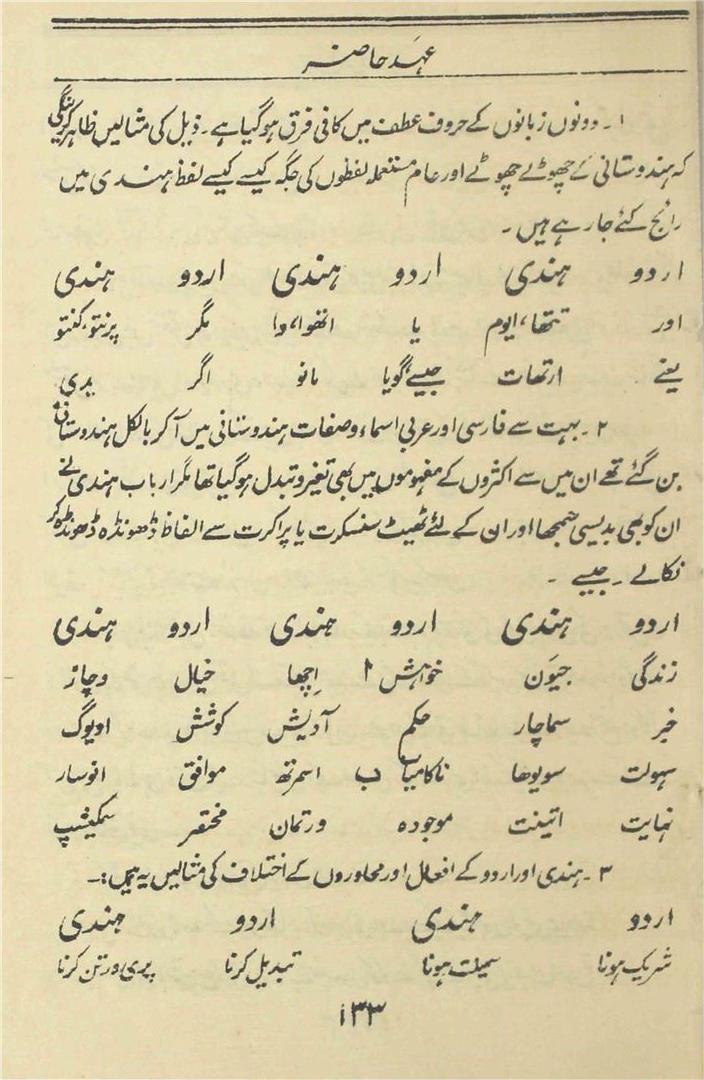 عہد حاضر
۱۔ دونوں زبانوں کے حروف عطف میں کافی فرق ہوگیا ہے۔ ذیل کی مثالیں ظاہر کرینگی
کہ ہندوستانی کے چھوٹے چھوٹے اور عام مستعملہ لفظوں کی جگہ کیسے کیسے لفظ ہندی میں
رائج کئے جا رہے ہیں۔
اردو ہندی اردو ہندی اردو ہندی
اور تتھا، ایوم یا اتھوا، وا مگر پرنتو، کنتو
یعنے ارتھات جیسے، گویا مانو اگر یدی
۲۔ بہت سے فارسی اور عربی اسماء و صفات ہندوستانی میں آکر بالکل ہندوستانی
بن گئے تھے ان میں سے اکثروں کے مفہوموں میں بھی تغیر و تبدل ہوگیا تھا مگر ارباب ہندی نے
ان کو بھی بدیسی سمجھا اور ان کے لئے ٹھیٹ سنسکرت یا پراکرت سے الفاظ ڈھونڈہ ڈھونڈہ کر
نکالے۔ جیسے ۔
اردو ہندی اردو ہندی اردو ہندی
زندگی جیوَن خواہش اِچھا خیال وچار
خبر سماچار حکم آدیش کوشش اویوگ
سہولت سویوھا ناکامیاب اسمرتھ موافق انوسار
نہایت اتینت موجودہ ورتمان مختصر سمکیشپ
۳۔ ہندی اور اردو کے افعال اور محاوروں کے اختلاف کی مثالیں یہ ہیں:۔
اردو ہندی اردو ہندی
شریک ہونا سمیلت ہونا تبدیل کرنا پری ورتن کرنا
۱۳۳